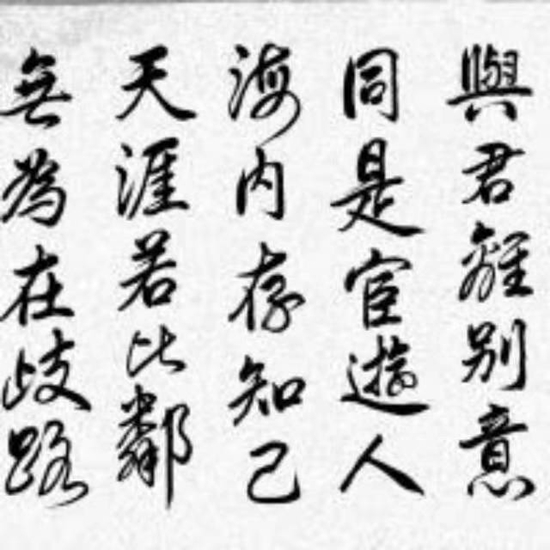 與君離别意
同是宦遊人
海内存知己
天涯若比鄰
無為在歧路